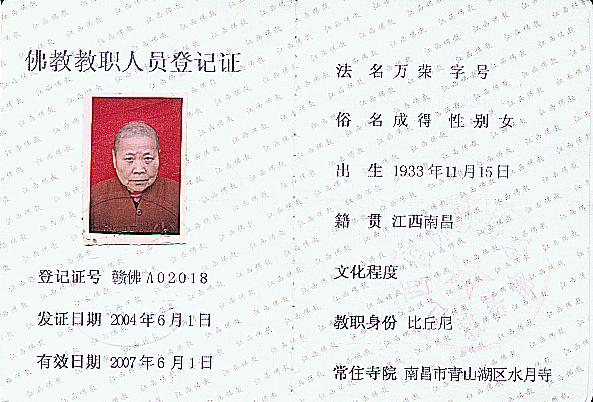 佛教教职人员登记证
登记证号 赣佛A02018
发证日期 2004年6月1日
有效日期 2007年6月1日
法 名 万荣 字号
俗 名 成得 性别 女
出 生 1933年11月15日
籍 贯 江西南昌
文化程度
教职身份 比丘尼
常住寺院 南昌市青山湖区水月寺